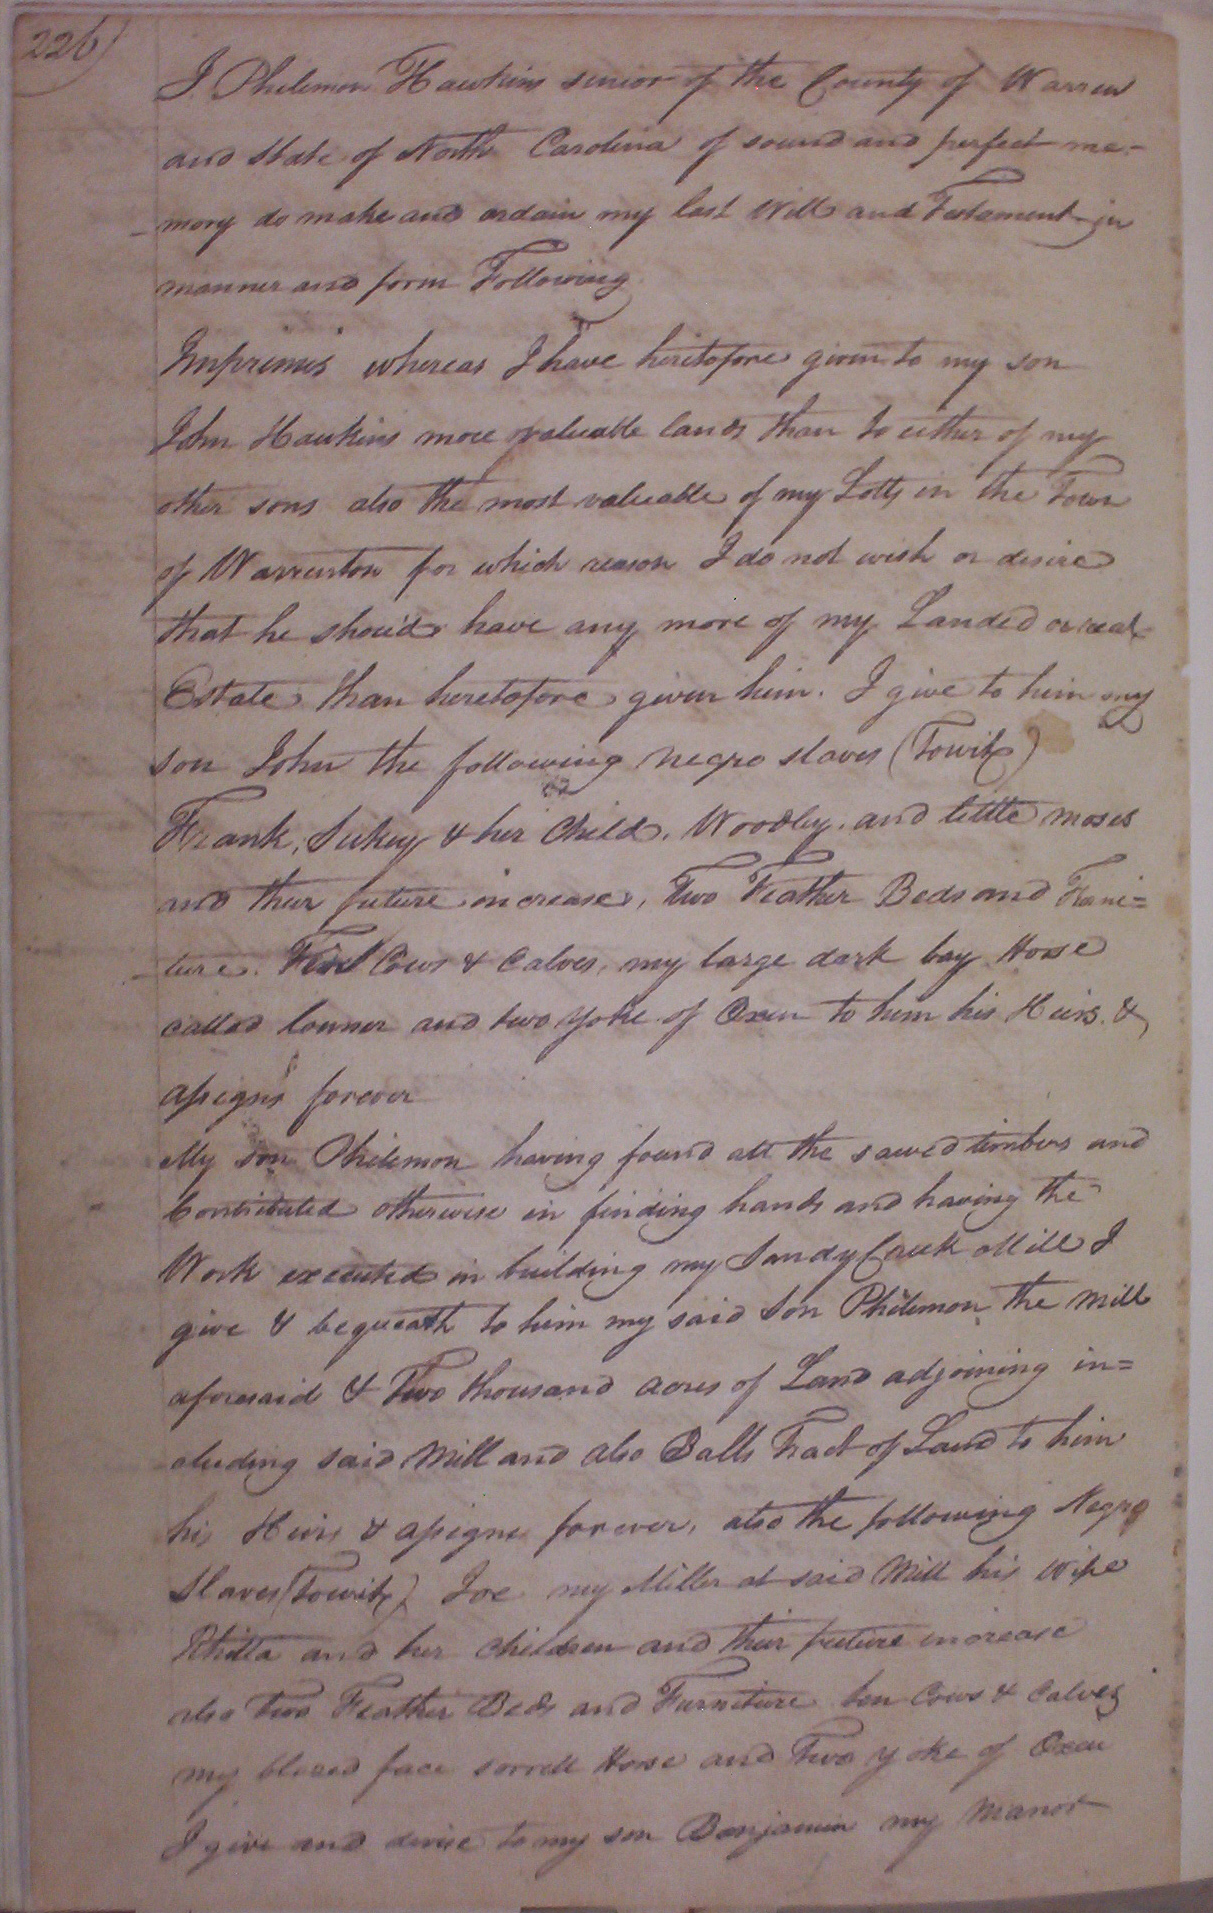 226
I Philemon Hawkins senior of the County of Warren
and State of North Carolina of sound and perfect me-
mory do make and ordain my last Will and Testament in
manner and form Following
Imprimis whereas I have heretofore given to my son
John Hawkins more valuable lands than to either of my
other sons also the most valuable of my Lotts in the Town
of Warrenton for which reason I do not wish or desire
that he should have any more of my Landed or real
Estate than heretofore given him. I give to him my
son John the following negro slaves (Towit)
Frank, Sukey & her Child, Woodley, and little moses
and their future increase, Two Feather Beds and Furni=
ture. Cows & Calves, my large dark bay Horse
called and two yoke of Oxen to him his Heirs &
assigns forever
My son Philemon having found all the sawed timbers and
Contributed otherwise in finding hands and having the
Work executed in building my Sandy Creek Mill I
give & bequeath to him my said Son Philemon the Mill
aforesaid & Two thousand acres of Land adjoining in=
cluding said Mill and also Balls Tract of Land to him
his Heirs & assigns forever, also the following Negro
Slaves (Towit) Joe my Miller at said Mill his Wife
and her Children and their future increase
also two Feather Beds and Furniture ten Cows & Calves
my blazed face sorrell Horse and Two yoke of Oxen
I give and devise to my son Benjamin my Manor